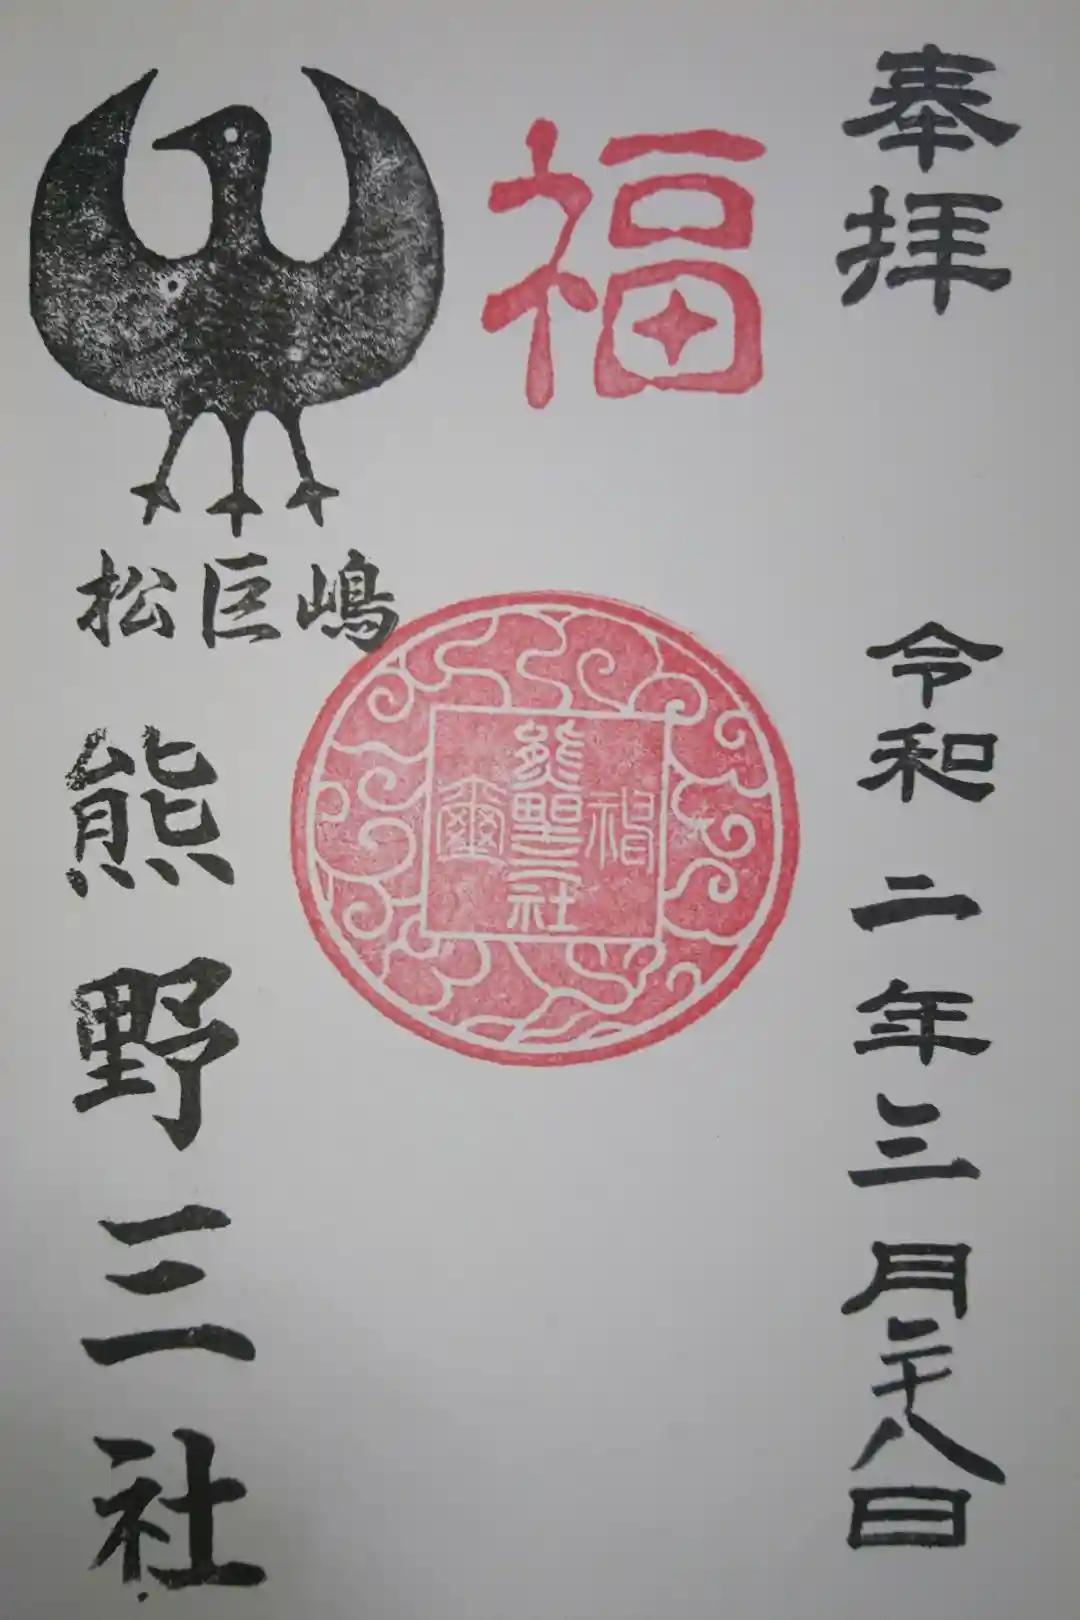 奉拝
令和二年三月二十八日
福
熊野三社
松巨嶋
熊野三社